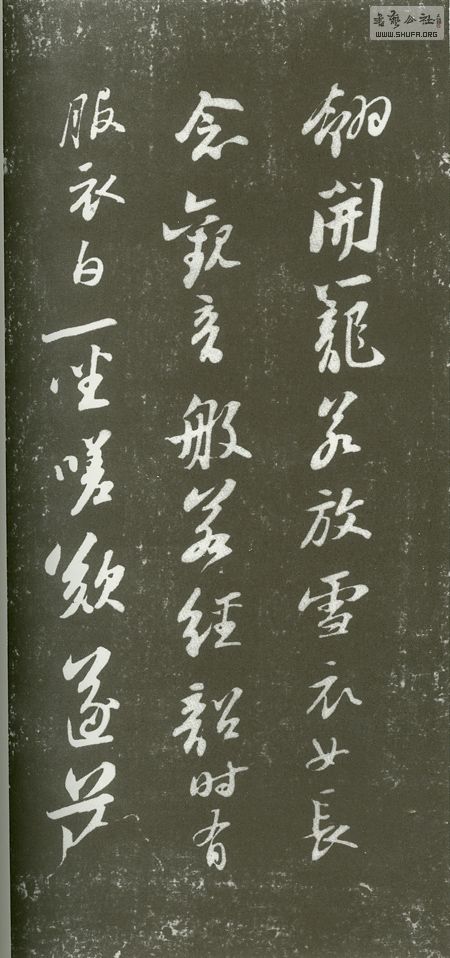 書藝公社
WWW.SHUFA.ORG
翎開籠若放雪衣女長
念觀音般若經韶時有
服衣白一坐嗟歎遂落